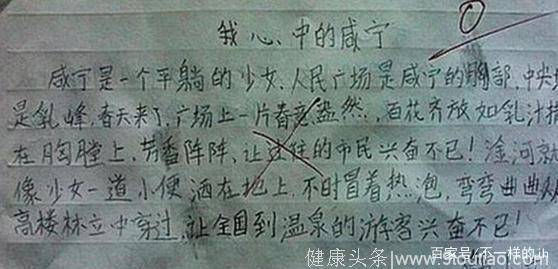 我心中的咸宁
0
咸宁是一个平躺的少女,人民广场是咸宁的胸部,中央
是乳峰,春天来了,广场上一片春意盎然,百花齐放如乳汁
在胸膛上,芳香阵阵,让过往的市民兴奋不已!淦河就
像少女一道小便洒在地上,不时冒着热泡,弯弯曲曲从
高楼林立中穿过,让全国到温泉的游客兴奋不已!
健康头条|www.9loutiao.com
百家号/不一样的